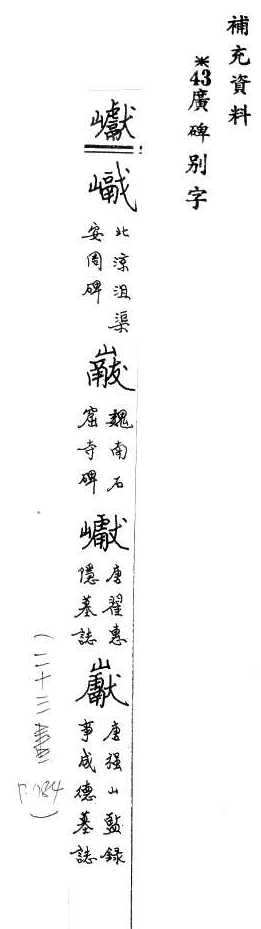 補充資料
※43廣碑別字
巘
北涼沮渠
安周碑
魏南石
窟寺碑
唐翟惠
隱墓誌
唐强山監錄
事成德墓誌
(二十三畫
P.784)